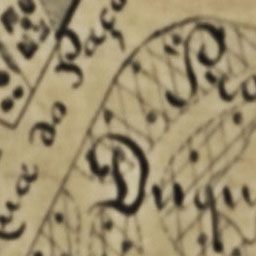 Rua do Paço
Pra
Duqu